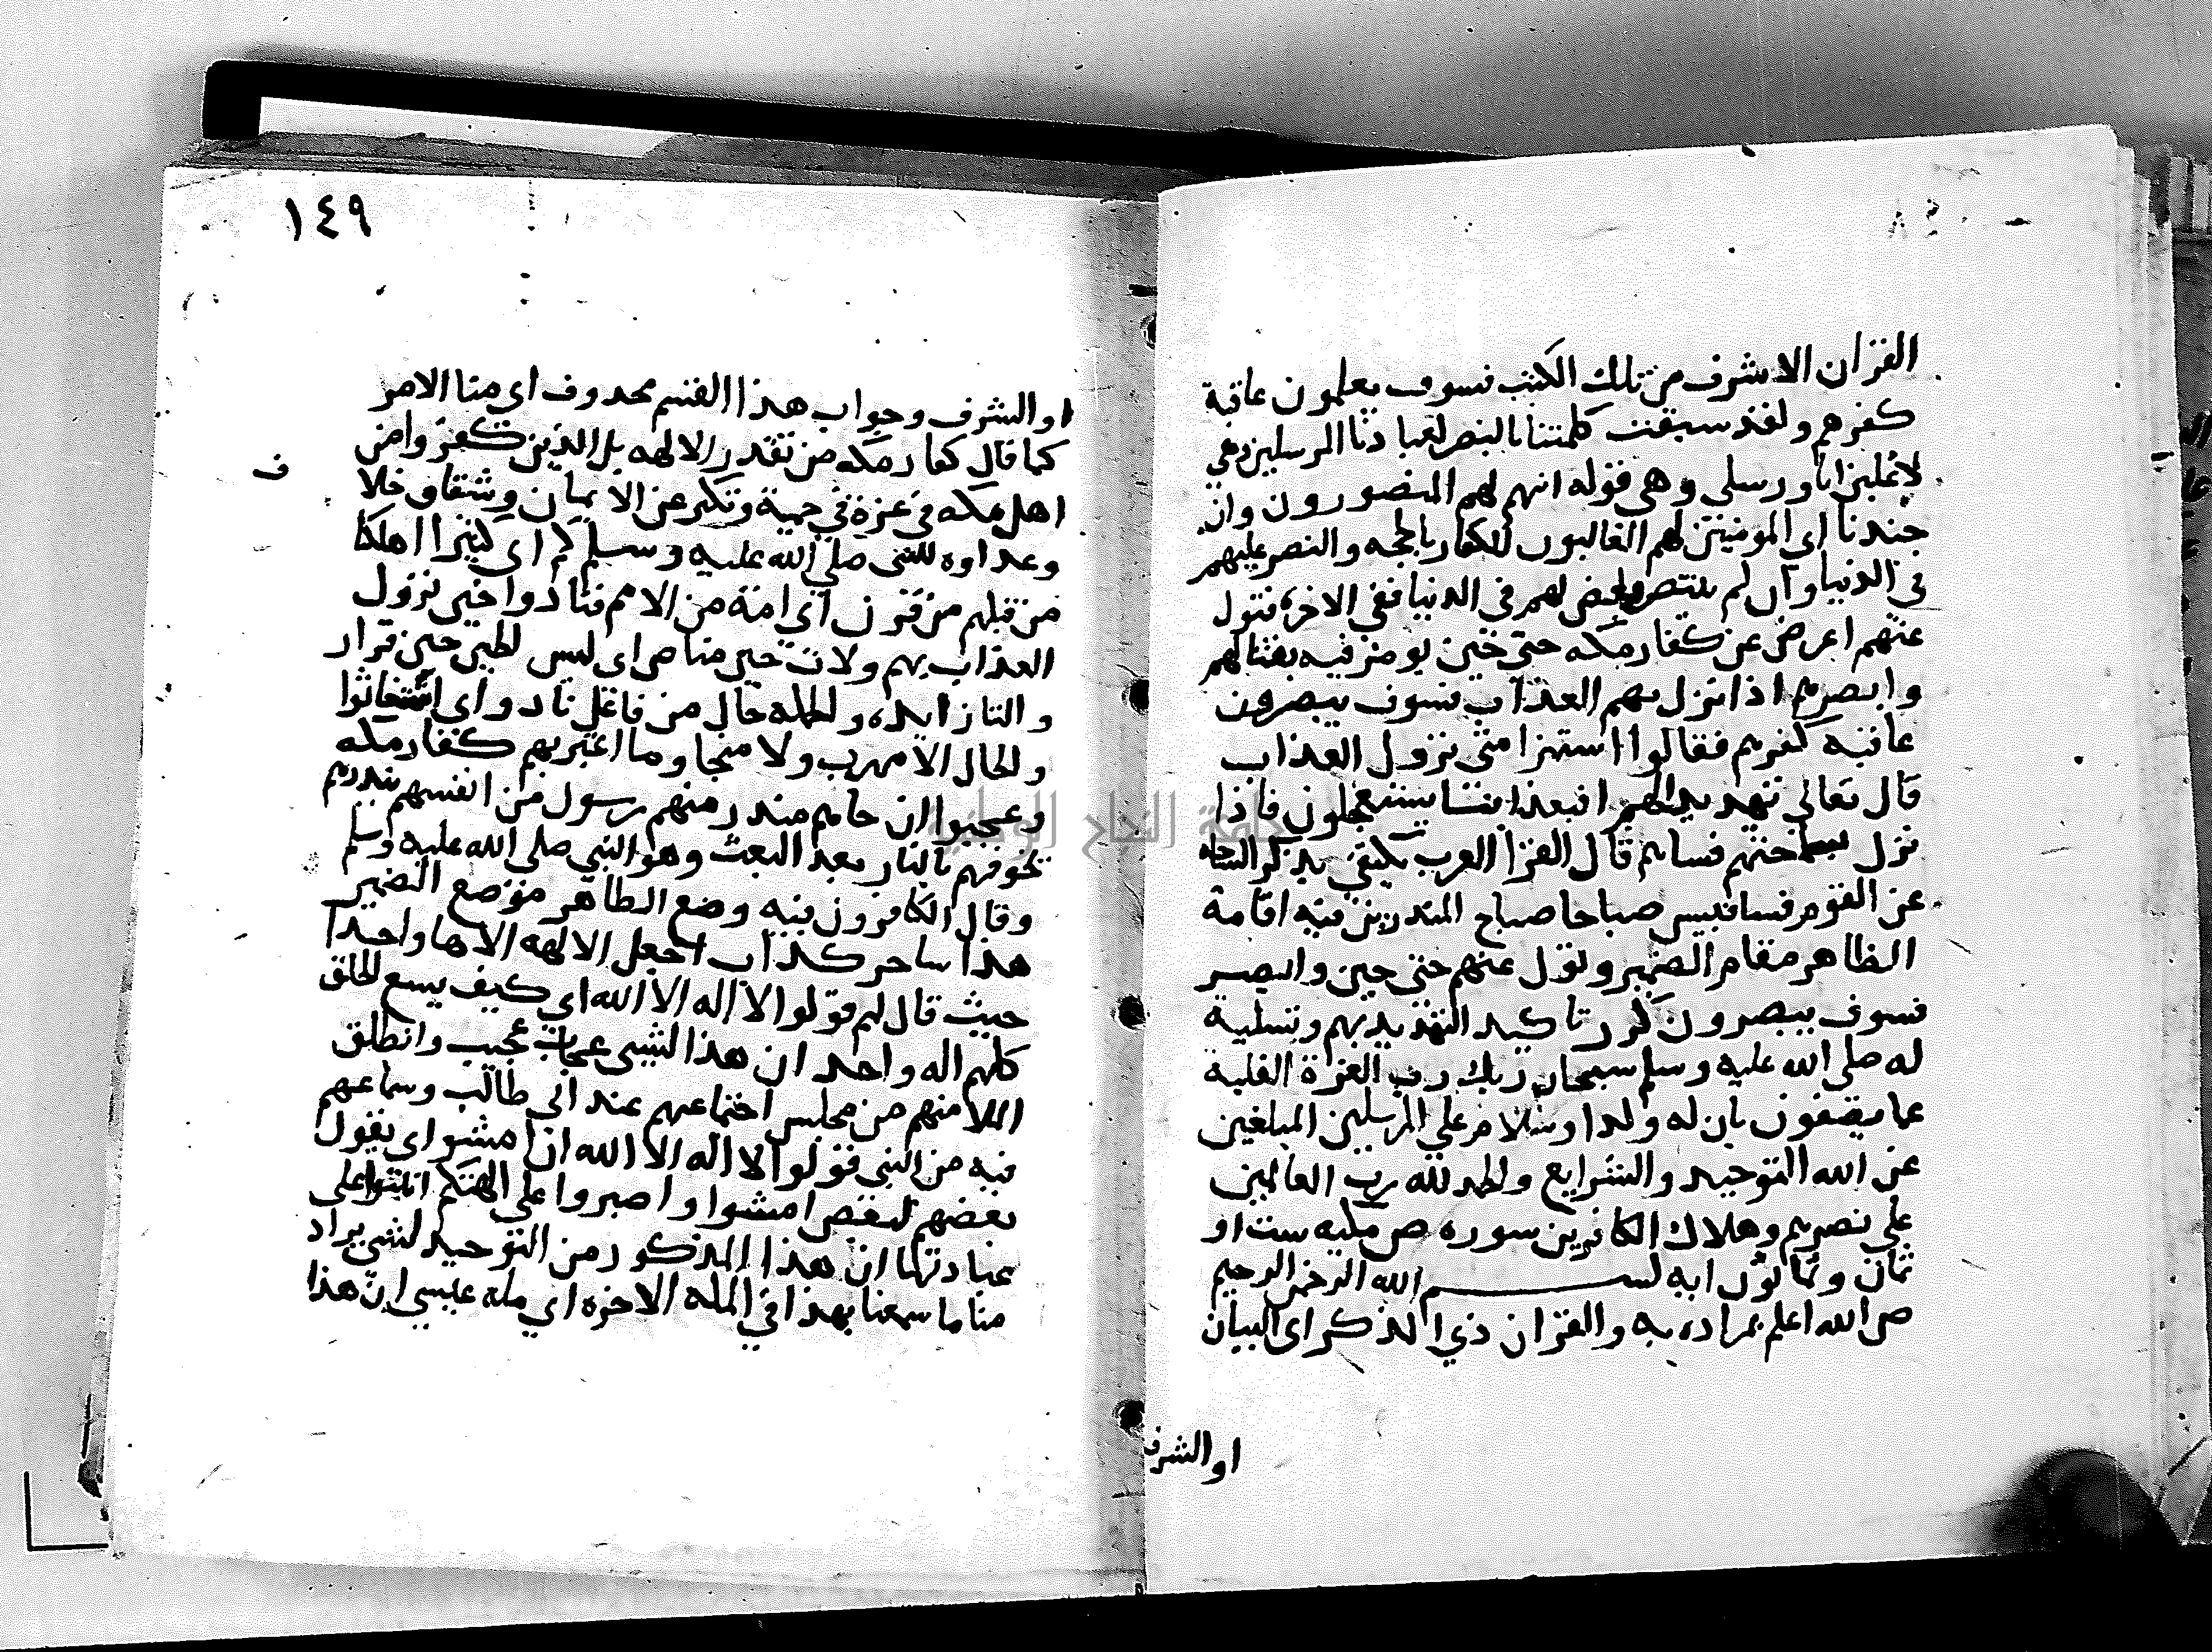 القران الاشرف من تلك الكتب فسوف يعلمون عاقبة
كفرهم ولقد سبقت كلمتنا بالنصر لعبادنا المرسلين وهي
لاغلبن انا ورسلي وهي قوله انهم لهم المنصورون وان
جندنا اي المومنين لهم الغالبون للكفار بالحجه والنصر عليهم
في الدنيا وان لم ينتصر بعض لهم في الدنيا ففي الاخرة فتول
عنهم اعرض عن كفار مكه حتي حين يومر فيه بقتالهم
وابصرهم اذا نزل بهم العذاب فسوف يبصرون
عاقبه كفرهم فقالوا استهزا متى نزول العذاب
قال تعالى تهديدا لهم افبعذابنا يستعجلون فاذا
نزل بساحتهم فسايم قال الفرا العرب تكتفي بذكر الساحه
عن القوم فسا فبيس صباحا صباح المنذرين فيه اقامة
الظاهر مقام الضمير وتول عنهم حتى حين وابصر
فسوف يبصرون كرر تاكيد التهديدهم وتسلية
له صلى الله عليه وسلم سبحان ربك رب العزة الغلبة
عما يصفون بان له ولدا وسلام علي المرسلين المبلغين
عن الله التوحيد والشرايع والحمد لله رب العالمين
علي نصرهم وهلاك الكافرين سوره ص مكيه ست او
ثمان وثمانون ايه بسم الله الرحمن الرحيم
ص الله اعلم بمراده به والقران ذي الذكر اى البيان
او الشرف
جامعة النجاح الوطنية
١٤٩
او الشرف وجواب هذا القسم محذوف اي منا الامر
كما قال كفار مكه من تعدد الالهه بل الذين كفروا من
ف
اهل مكه في عزة في حمية وتكبر عن الايمان وشقاق خلا
وعداوه للنبي صلي الله عليه وسلم كم اى كثيرا اهلكنا
من قبلهم من قرن اي امة من الامم فنادوا حين نزول
العذاب بهم ولات حين مناص اى ليس الحين حين فرار
والتا زايده والجمله حال من فاعل نادوا اي استغاثوا
والحال الا مهرب ولا منجا وما اعتبر بهم كفار مكه
وعجبوا ان جاهم منذر منهم رسول من انفسهم ينذرهم
تخوفهم بالنار بعد البعث وهو النبي صلى الله عليه وسلم
وقال الكافرون فيه وضع الظاهر موضع الضمير
هذا ساحر كذاب اجعل الالهه الاها واحدا
حيث قال لهم قولوا لا اله الا الله اي كيف يسع الخلق
كلهم اله واحد ان هذا لشيى عجاب عجيب وانطلق
الملا منهم من مجلس اجتماعهم عند ابي طالب وسماعهم
فيه من النبي قولوا لا اله الا الله ان امشوا اي يقول
بعضهم لبعض امشوا واصبروا على الهتكم اثبتوا على
عبادتها ان هذا المذكور من التوحيد لشى يراد
منا ما سمعنا بهذا في المله الاخره اي مله عيسي ان هذا